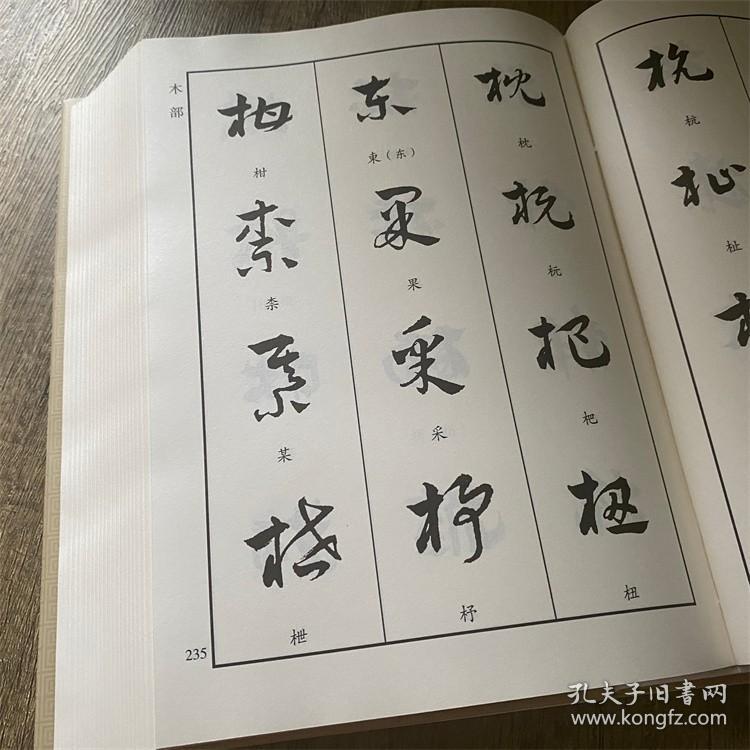 木部
杭
杭
杫
杫
枕
枕
杬
杬
杷
杷
杻
杻
东
東（东）
果
果
采
采
杼
杼
柑
柑
柰
柰
某
某
枻
枻
235
孔夫子旧书网
www.kongfz.com